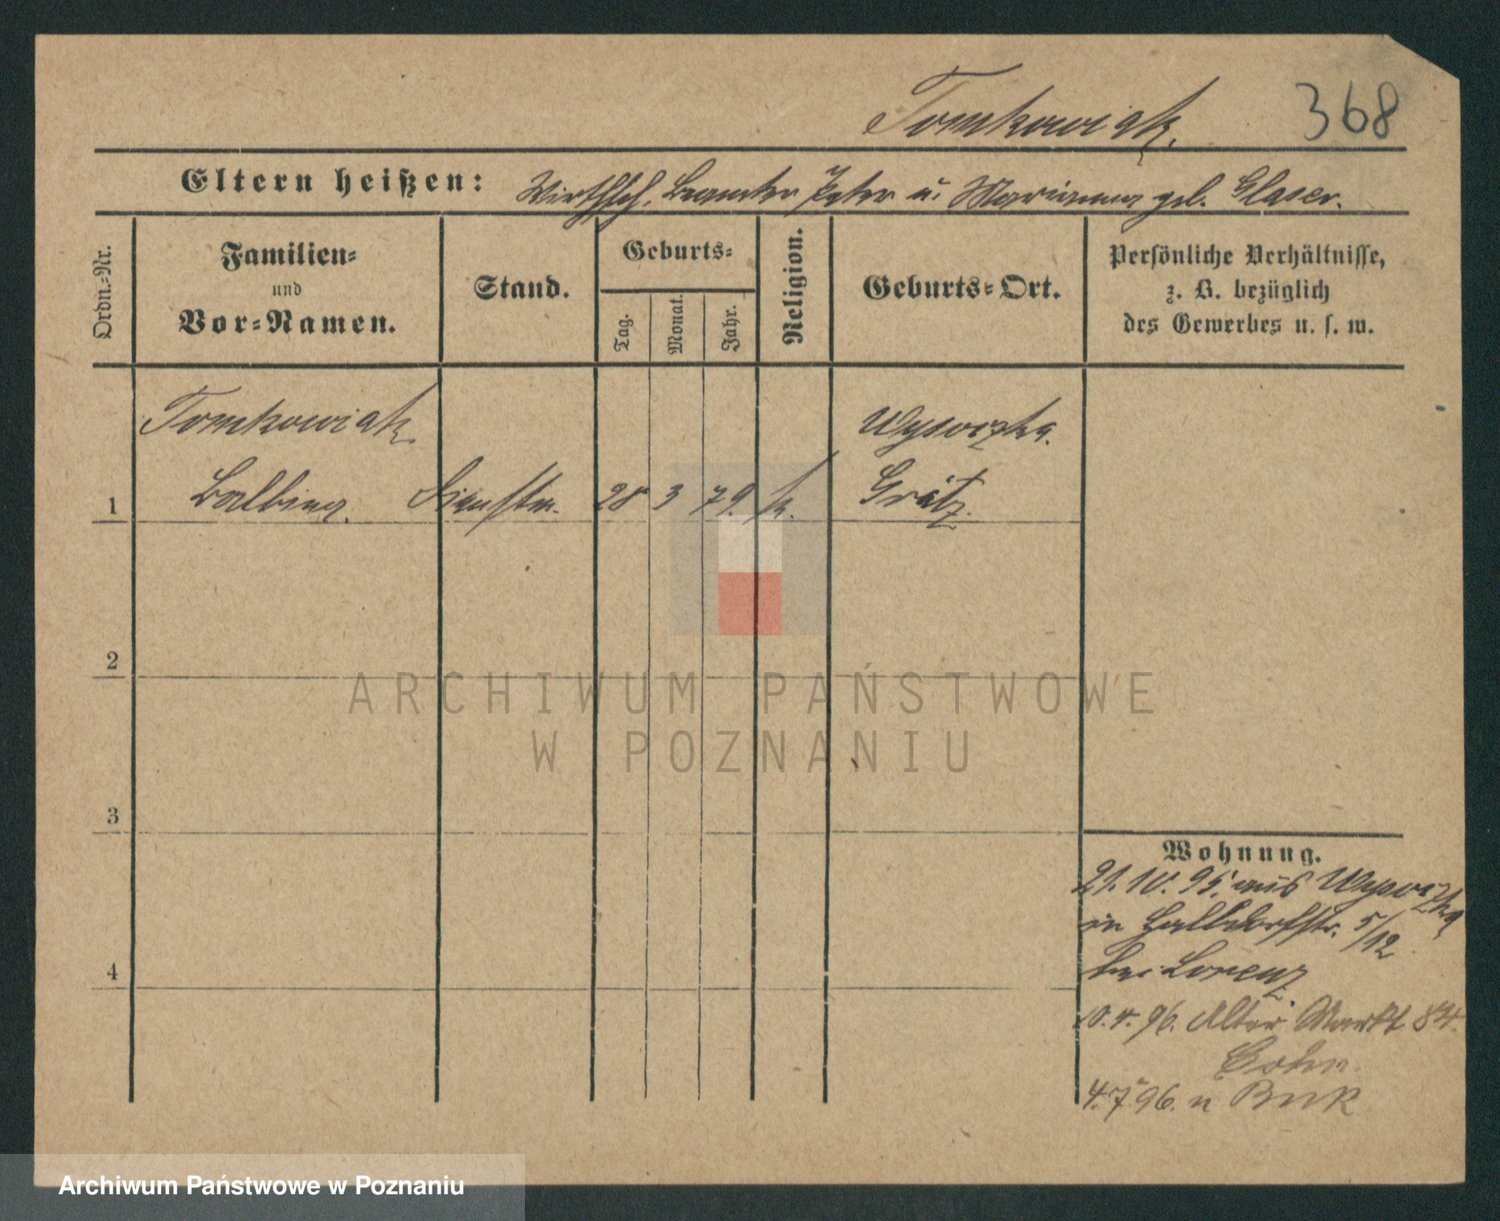 Tomkowiak.
368
Eltern heißen: Wirthsch. Beamter Peter u. Marianna geb. Glaser.
Ordn.-Nr.
Familien-
und
Vor-Namen.
Stand.
Geburts-
Tag.
Monat.
Jahr.
Religion.
Geburts-Ort.
Persönliche Verhältnisse,
z. B. bezüglich
des Gewerbes u. s. w.
Tomkowiak
Wysoczka.
1 Balbina. Dienstm. 28 3 79. k. Grätz.
2
3
4
ARCHIWUM PAŃSTWOWE
W POZNANIU
Wohnung.
21.10.95. aus Wysoczka
in Halbdorfstr. 5/12
bei Lorenz.
10.4.96. Alter Markt 84.
Cohn.
4.7.96. n Buk
Archiwum Państwowe w Poznaniu